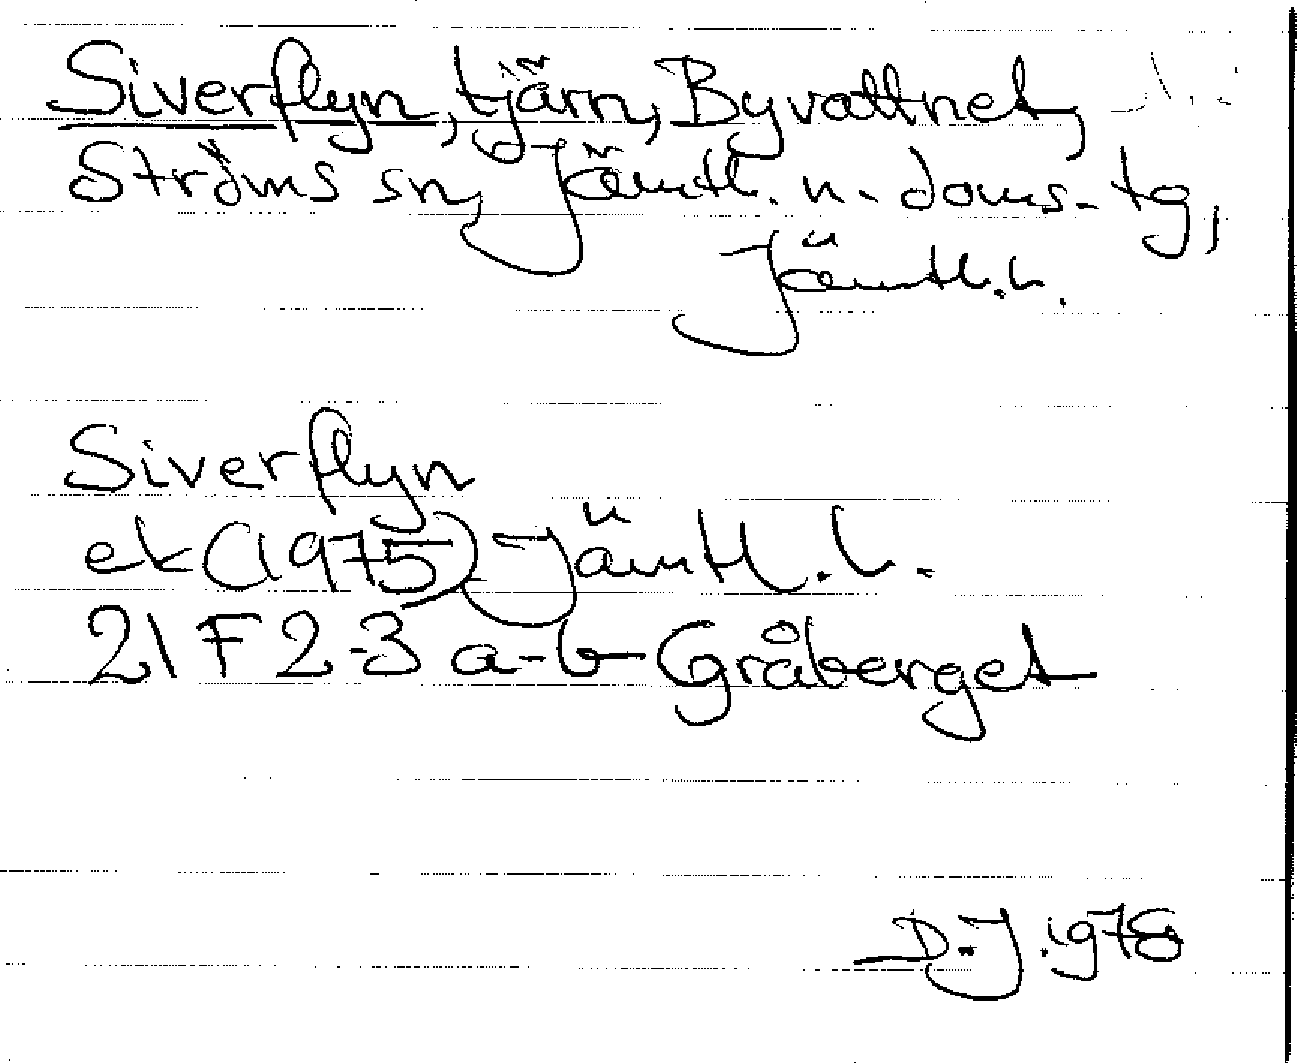 Siverflyn, tjärn, Byvattnet,
Ströms sn, Jämtl. n. doms. tg,
Jämtl.l.
Siverflyn
ek (1975) Jämtl.l.
21 F 2-3 a-b Gråberget
D.J. 1978